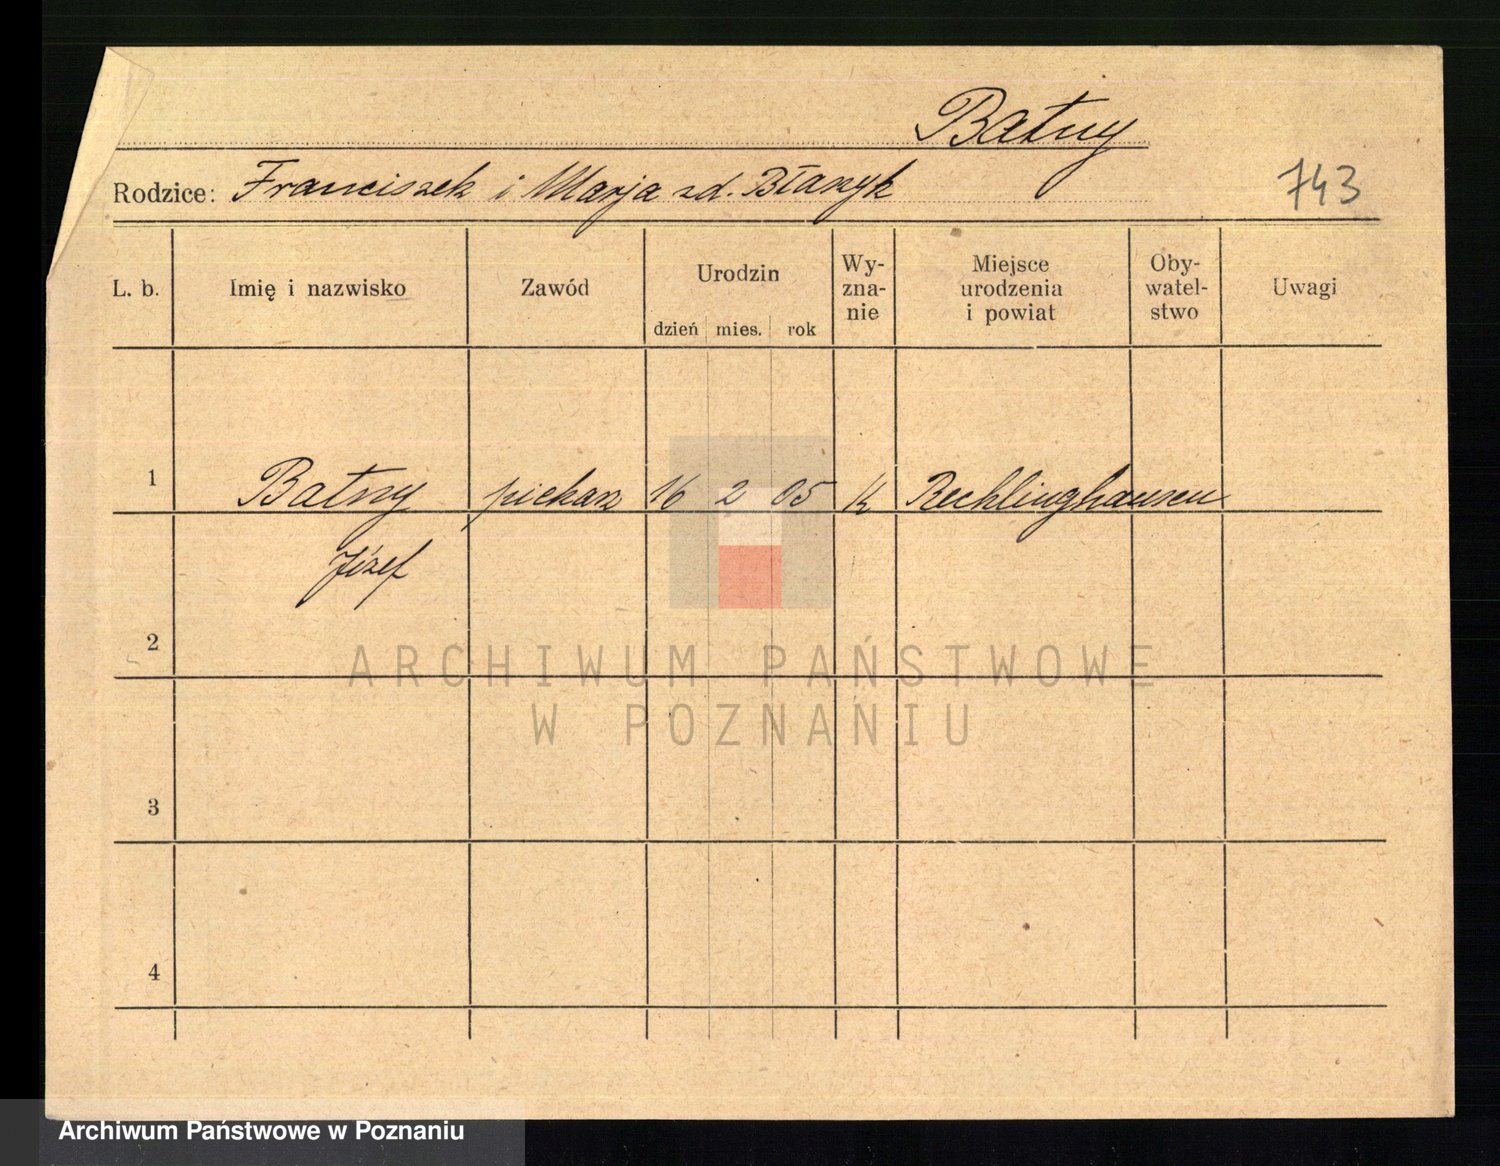 Batny
Rodzice: Franciszek i Marja zd. Błaszyk
743
L. b. Imię i nazwisko Zawód Urodzin dzień mies. rok Wy-
zna-
nie Miejsce
urodzenia
i powiat Oby-
watel-
stwo Uwagi
1 Batny piekarz 16 2 05 K Recklinghausen
Józef
2
ARCHIWUM PAŃSTWOWE
W POZNANIU
3
4
Archiwum Państwowe w Poznaniu